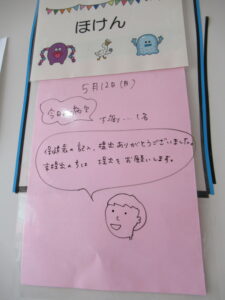 ほけん
5月12日(月)
今日の病欠
下痢…1名
保健票の記入、提出ありがとうございました。
未提出の方は 提出をお願いします。